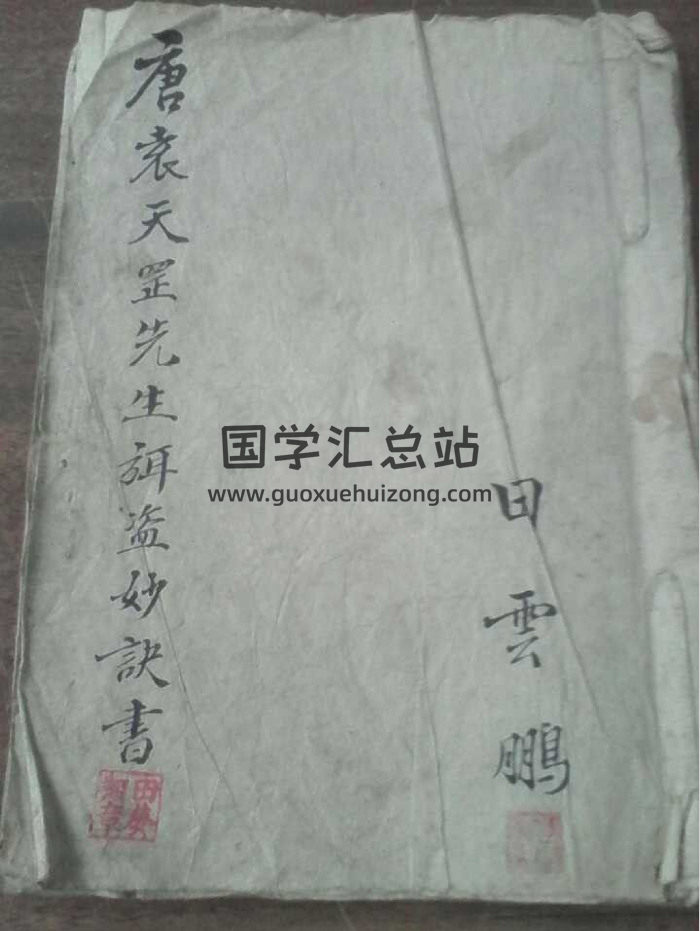 唐袁天罡先生弭盗妙訣書
田雲鵬
国学汇总站
www.guoxuehuizong.com